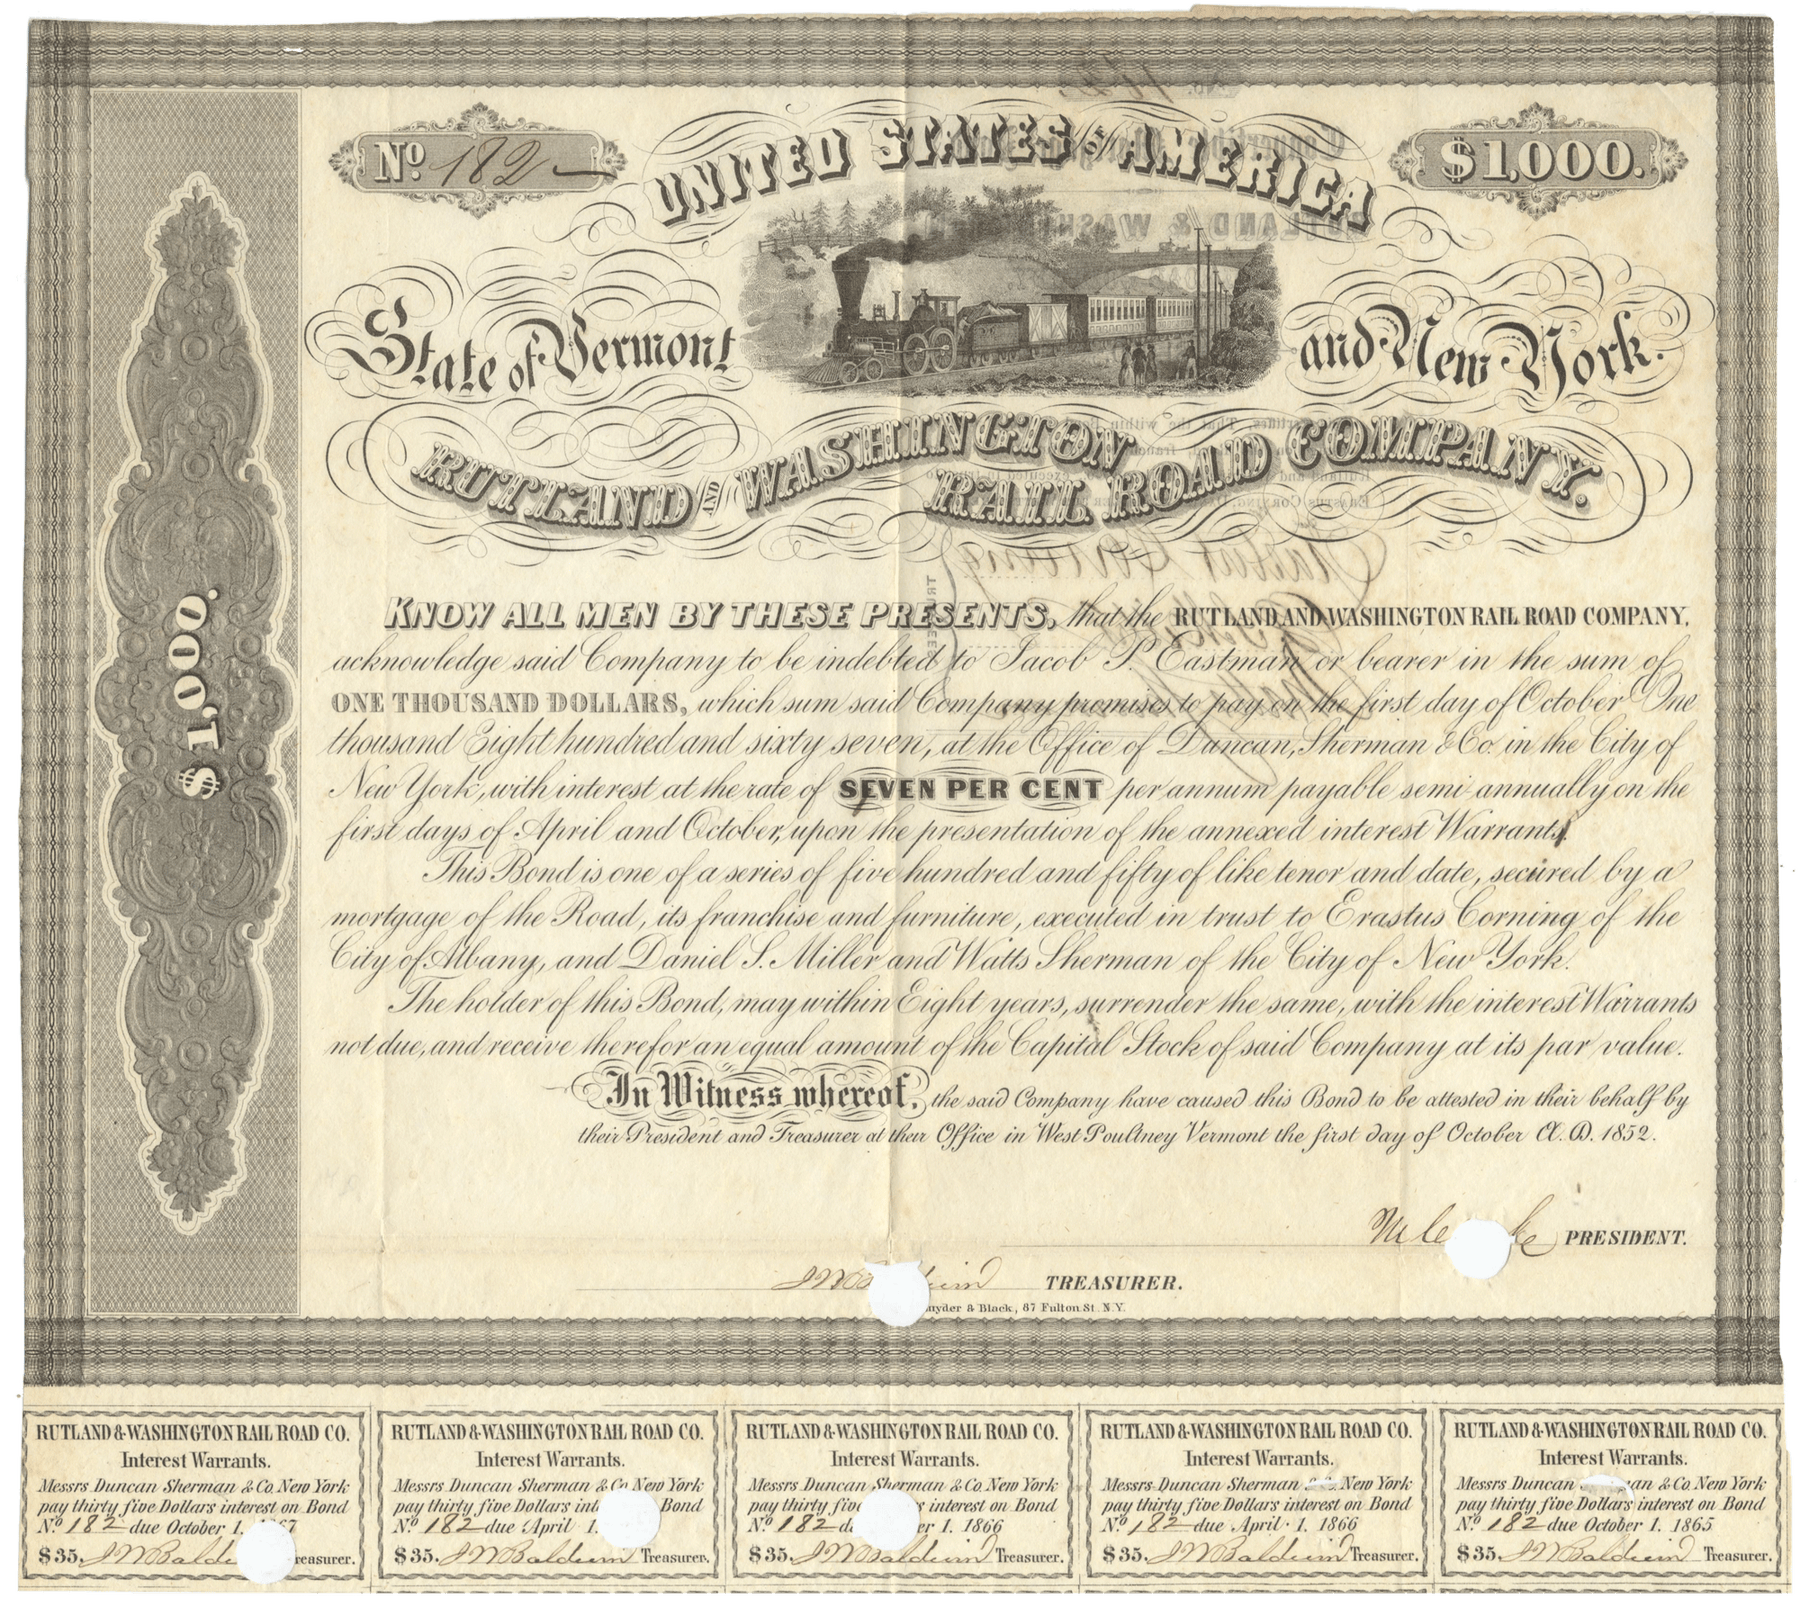 No. 182
UNITED STATES OF AMERICA
$1,000.
State of Vermont
and New York.
RUTLAND AND WASHINGTON RAIL ROAD COMPANY.
$1,000.
KNOW ALL MEN BY THESE PRESENTS, that the RUTLAND AND WASHINGTON RAIL ROAD COMPANY,
acknowledge said Company to be indebted to Jacob P. Eastman or bearer in the sum of
ONE THOUSAND DOLLARS, which sum said Company promises to pay on the first day of October One
thousand Eight hundred and sixty seven, at the Office of Duncan, Sherman & Co. in the City of
New York, with interest at the rate of SEVEN PER CENT per annum payable semi-annually on the
first days of April and October, upon the presentation of the annexed interest Warrants.
This Bond is one of a series of five hundred and fifty of like tenor and date, secured by a
mortgage of the Road, its franchise and furniture, executed in trust to Erastus Corning of the
City of Albany, and Daniel S. Miller and Watts Sherman of the City of New York.
The holder of this Bond, may within Eight years, surrender the same, with the interest Warrants
not due, and receive therefor an equal amount of the Capital Stock of said Company at its par value.
In Witness whereof, the said Company have caused this Bond to be attested in their behalf by
their President and Treasurer at their Office in West Poultney Vermont the first day of October A.D. 1852.
PRESIDENT.
J W Baldwin TREASURER.
& Black, 87 Fulton St. N.Y.
RUTLAND & WASHINGTON RAIL ROAD CO.
Interest Warrants.
Messrs Duncan Sherman & Co. New York
pay thirty five Dollars interest on Bond
No. 182 due October 1.
$35. J W Baldwin Treasurer.
RUTLAND & WASHINGTON RAIL ROAD CO.
Interest Warrants.
Messrs Duncan Sherman & Co. New York
pay thirty five Dollars Bond
No. 182 due April 1.
$35. J W Baldwin Treasurer.
RUTLAND & WASHINGTON RAIL ROAD CO.
Interest Warrants.
Messrs Duncan Sherman & Co. New York
pay thirty five Dollars interest on Bond
No. 182 1. 1866
$35. J W Baldwin Treasurer.
RUTLAND & WASHINGTON RAIL ROAD CO.
Interest Warrants.
Messrs Duncan Sherman & Co. New York
pay thirty five Dollars interest on Bond
No. 182 due April 1. 1866
$35. J W Baldwin Treasurer.
RUTLAND & WASHINGTON RAIL ROAD CO.
Interest Warrants.
Messrs Duncan & Co. New York
pay thirty five Dollars interest on Bond
No. 182 due October 1. 1865
$35. J W Baldwin Treasurer.